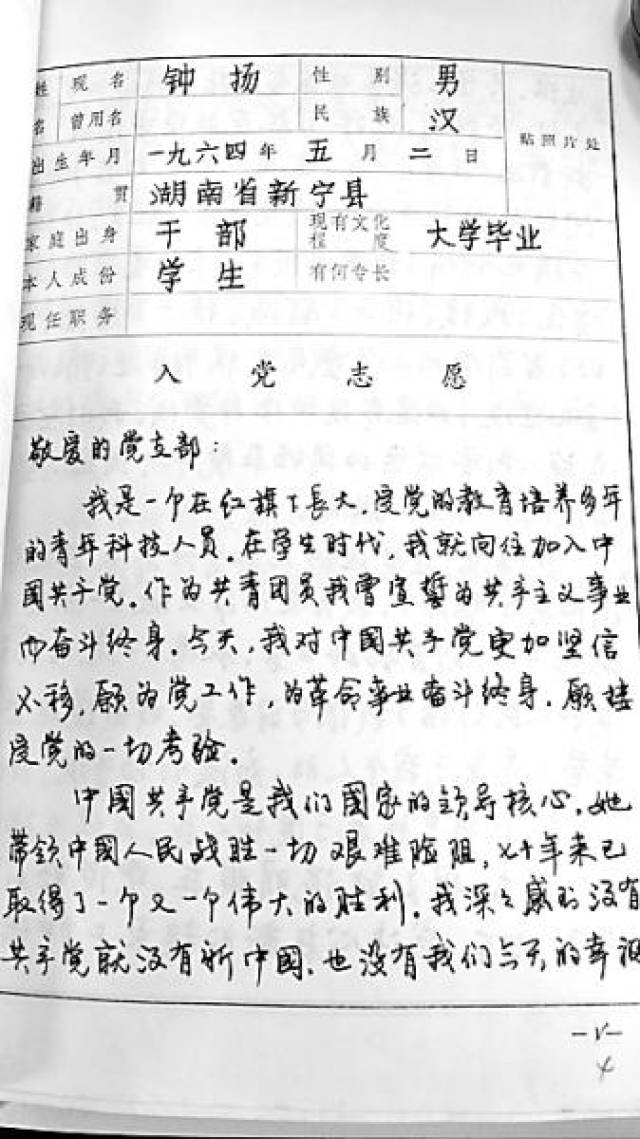 姓 现名 钟扬 性别 男
名 曾用名 民族 汉
贴照片处
出生年月 一九六四年 五月 二日
籍贯 湖南省新宁县
家庭出身 干部 现有文化程度 大学毕业
本人成份 学生 有何专长
现任职务
入党志愿
敬爱的党支部:
我是一个在红旗下長大,受党的教育培养多年
的青年科技人员。在学生时代,我就向往加入中
國共产党。作为共青团员我曾宣誓为共产主义事业
而奋斗终身。今天,我对中國共产党更加坚信
不移,愿为党工作,为革命事业奋斗终身。愿接
受党的一切考验。
中國共产党是我们國家的领导核心。她
带领中國人民战胜一切艰难险阻,七十年来已
取得了一个又一个伟大的胜利。我深々感到没有
共产党就没有新中國,也没有我们今天的幸福